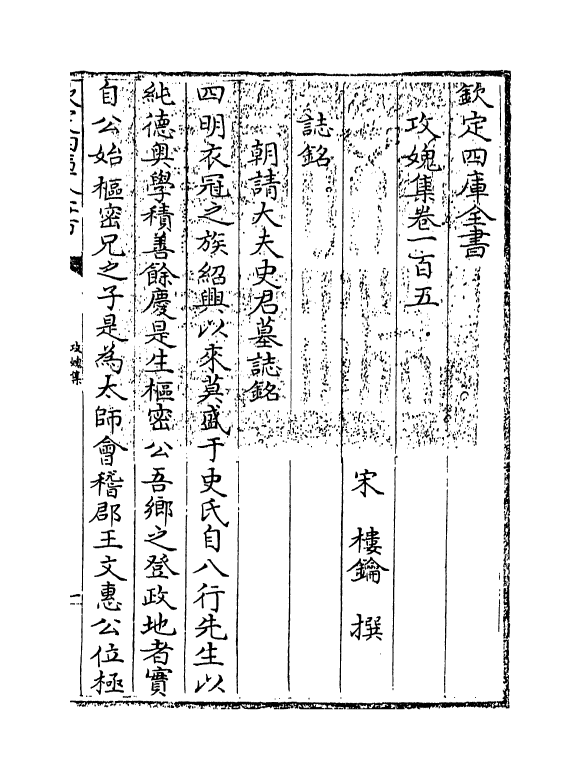 欽定四庫全書
攻媿集卷一百五
宋 樓鑰 撰
誌銘
朝請大夫史君墓誌銘
四明衣冠之族紹興以來莫盛于史氏自八行先生以
純德奧學積善餘慶是生樞密公吾鄉之登政地者實
自公始樞密兄之子是為太師會稽郡王文惠公位極
欽定四庫全書
攻媿集
一